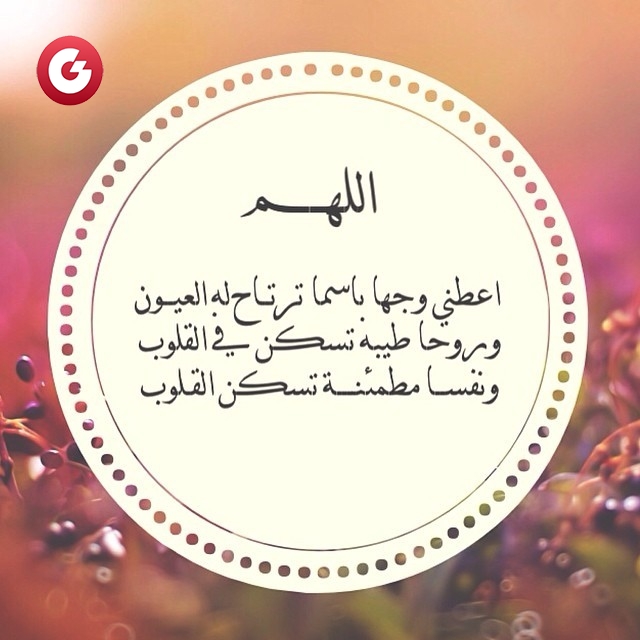 اللهم
اعطني وجها باسما ترتاح له العيون
وروحا طيبة تسكن في القلوب
ونفسا مطمئنة تسكن القلوب